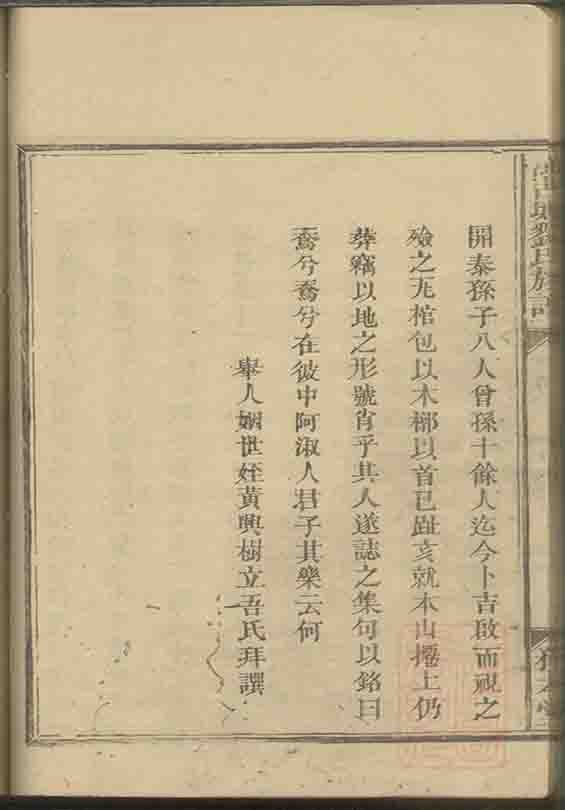 劉氏族譜
開泰孫子八人曾孫十餘人迄今卜吉啟而視之
殮之瓦棺包以木槨以首巳趾亥就本山擇土仍
葬竊以地之形號肖乎其人遂誌之集句以銘曰
鴦兮鴦兮在彼中阿淑人君子其樂云何
舉人姻世姪黃興樹立吾氏拜譔